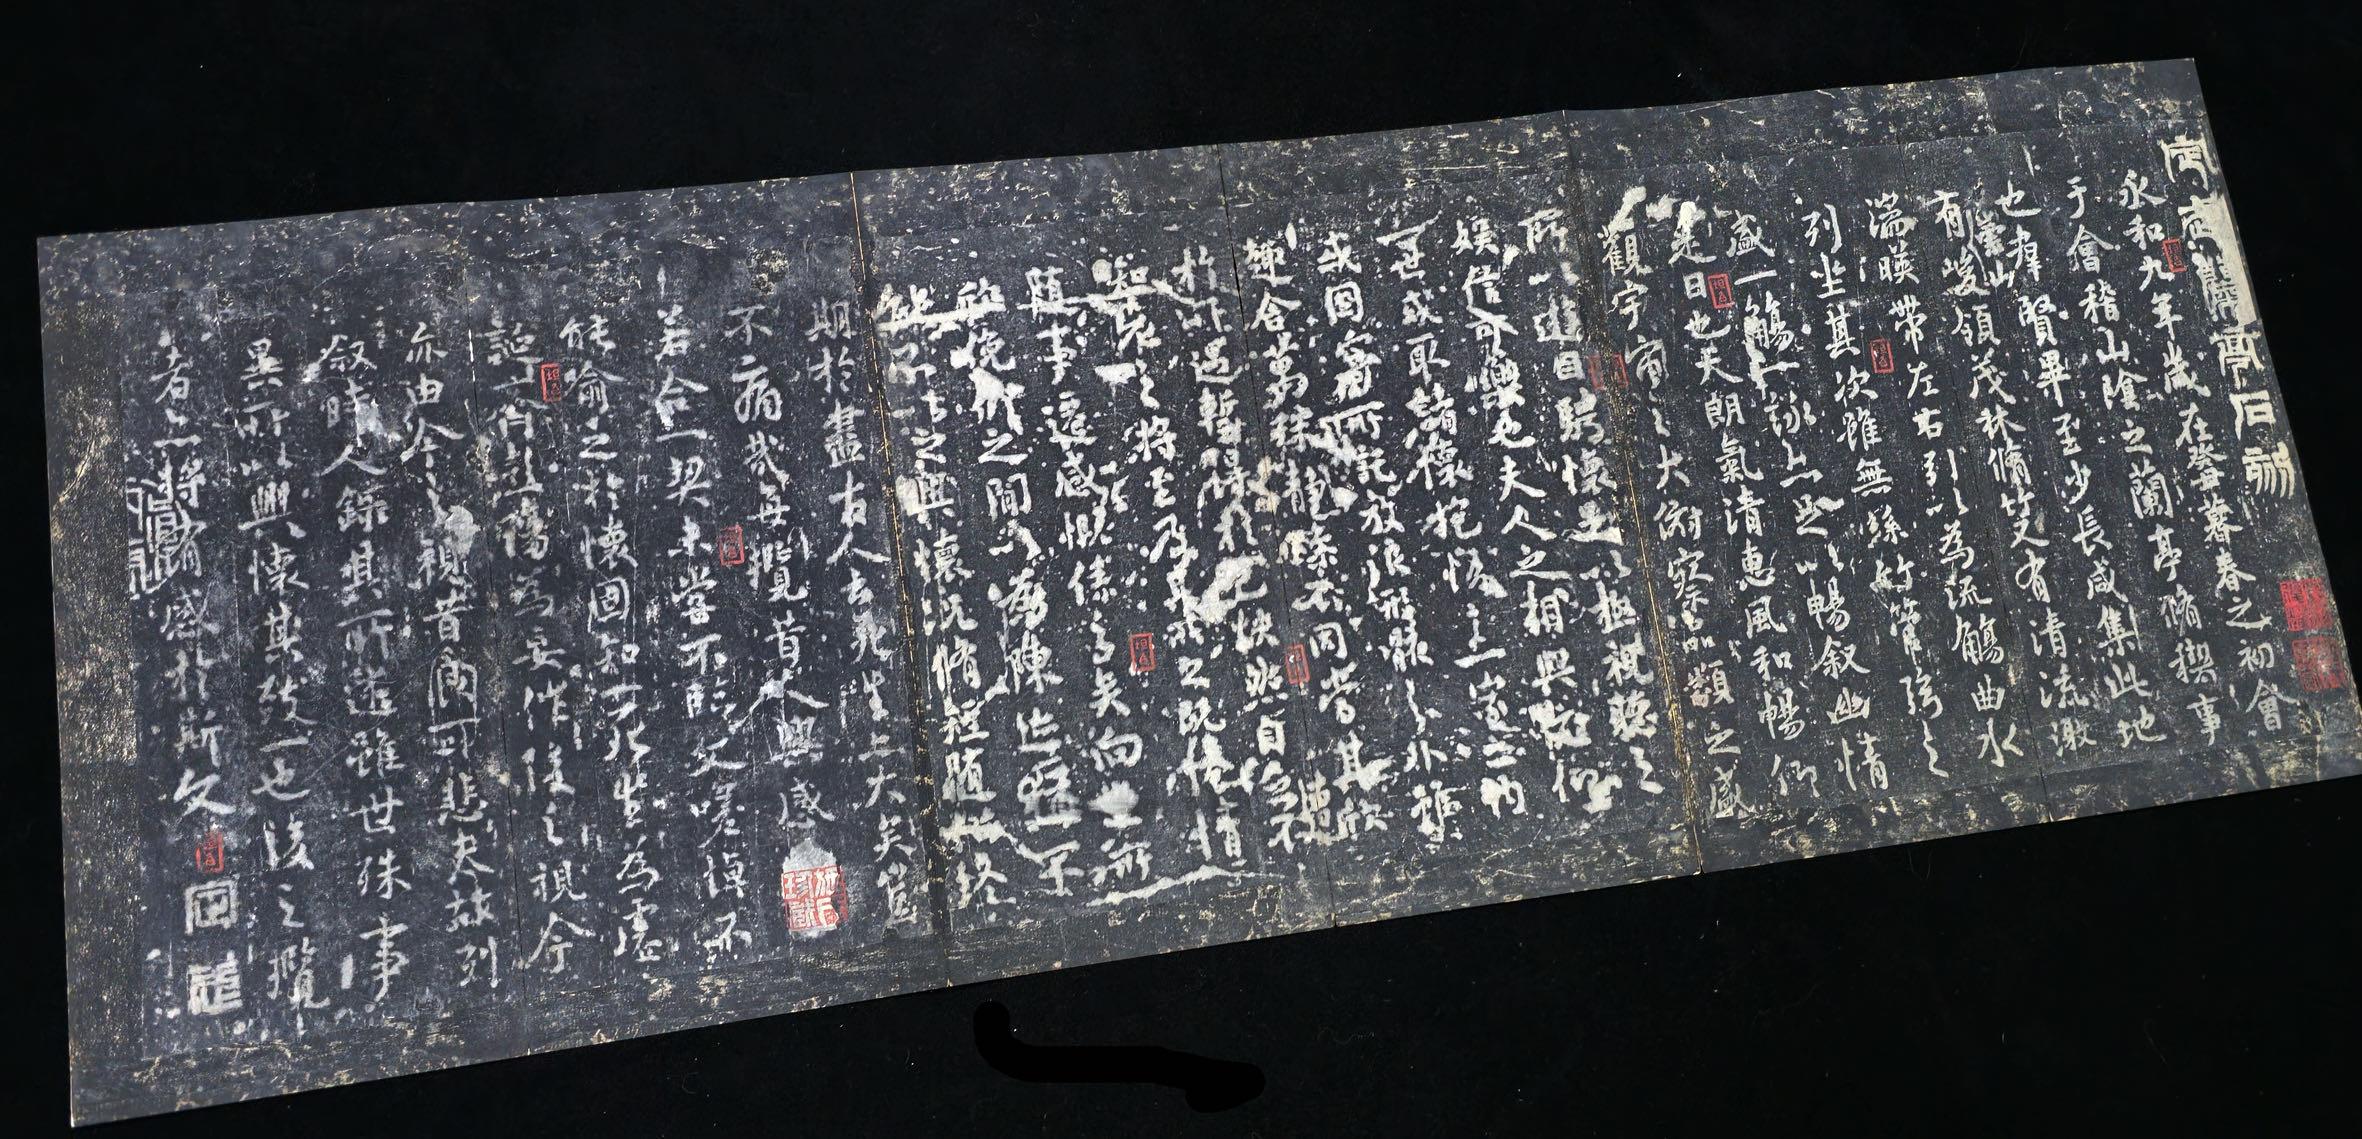 宇定蘭亭石刻
永和九年歲在癸丑暮春之初會
于會稽山陰之蘭亭脩禊事
也羣賢畢至少長咸集此地
有崇山峻領茂林脩竹又有清流激
湍暎帶左右引以為流觴曲水
列坐其次雖無絲竹管弦之
盛一觴一詠亦足以暢叙幽情
是日也天朗氣清惠風和暢仰
觀宇宙之大俯察品類之盛
所以遊目騁懷足以極視聽之
娛信可樂也夫人之相與俯仰
一世或取諸懷抱悟言一室之內
或因寄所託放浪形骸之外雖
趣舍萬殊靜躁不同當其欣
於所遇暫得於己快然自足不
知老之將至及其所之既惓情
隨事遷感慨係之矣向之所
欣俛仰之間以為陳迹猶不
能不以之興懷況脩短隨化終
期於盡古人云死生亦大矣豈
不痛哉每攬昔人興感之由
若合一契未嘗不臨文嗟悼不
能喻之於懷固知一死生為虛
誕齊彭殤為妄作後之視今
亦由今之視昔悲夫故列
叙時人錄其所述雖世殊事
異所以興懷其致一也後之攬
者亦將有感於斯文